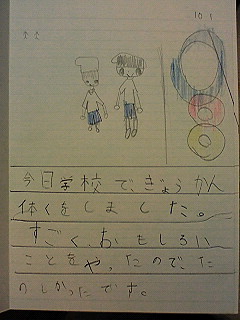 10 1
今日学校で、ぎょうかん
体くをしました。
すごく、おもしろい
ことをやったのでた
のしかったです。